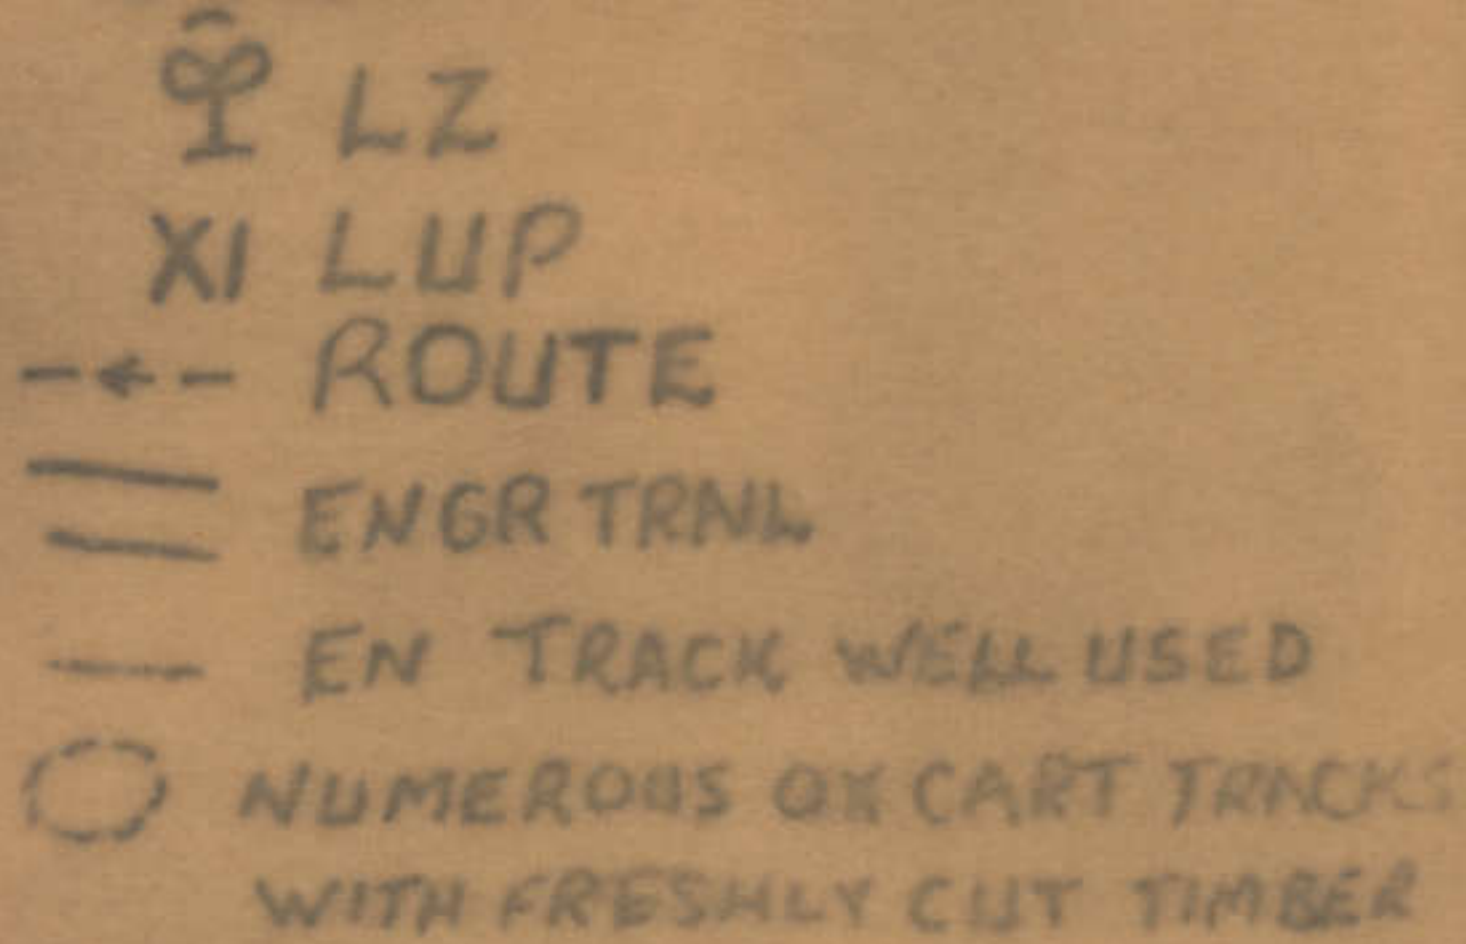 LZ
X1 LUP
ROUTE
ENGR TRAIL
EN TRACK WELL USED
NUMEROUS OX CART TRACKS
WITH FRESHLY CUT TIMBER